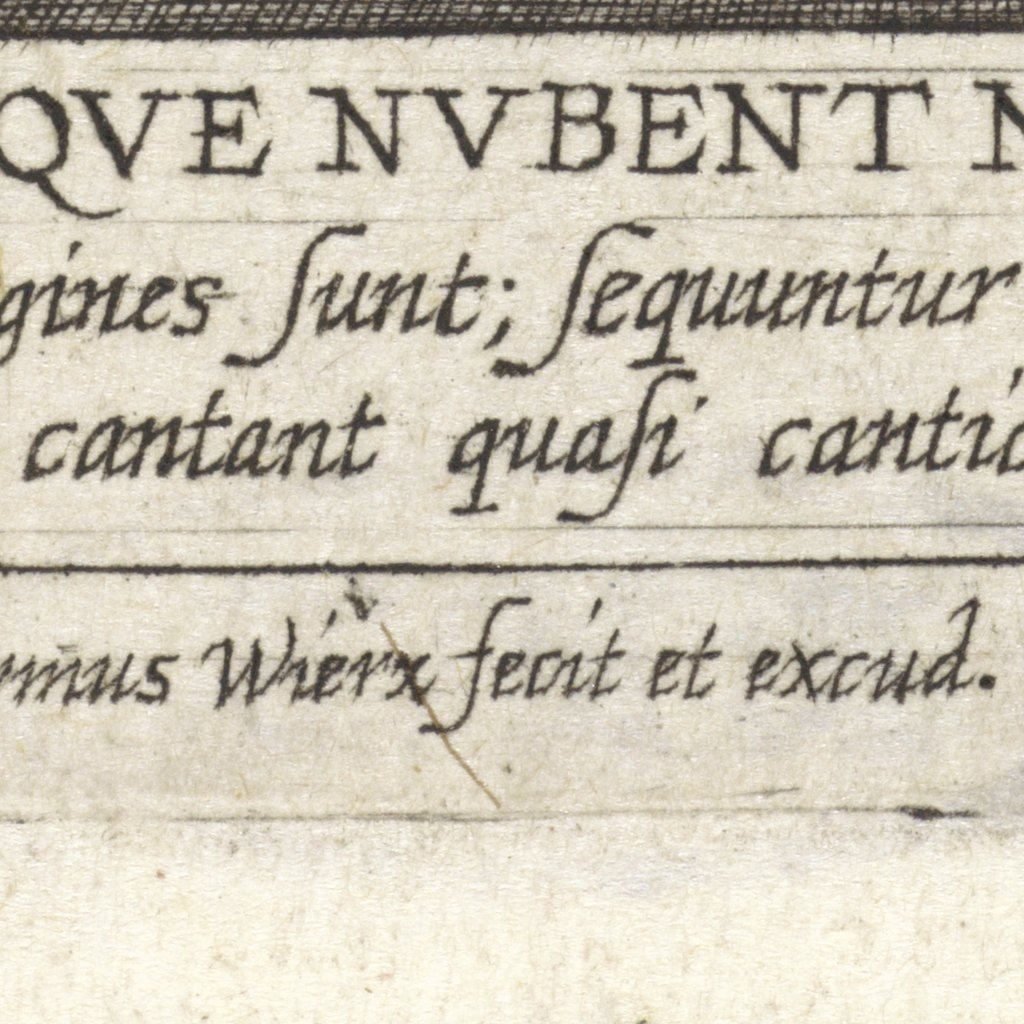 QVE NVBENT N
gines ſunt; ſequuntur
cantant quaſi cantic
rmus Wiérx fecit et excud.